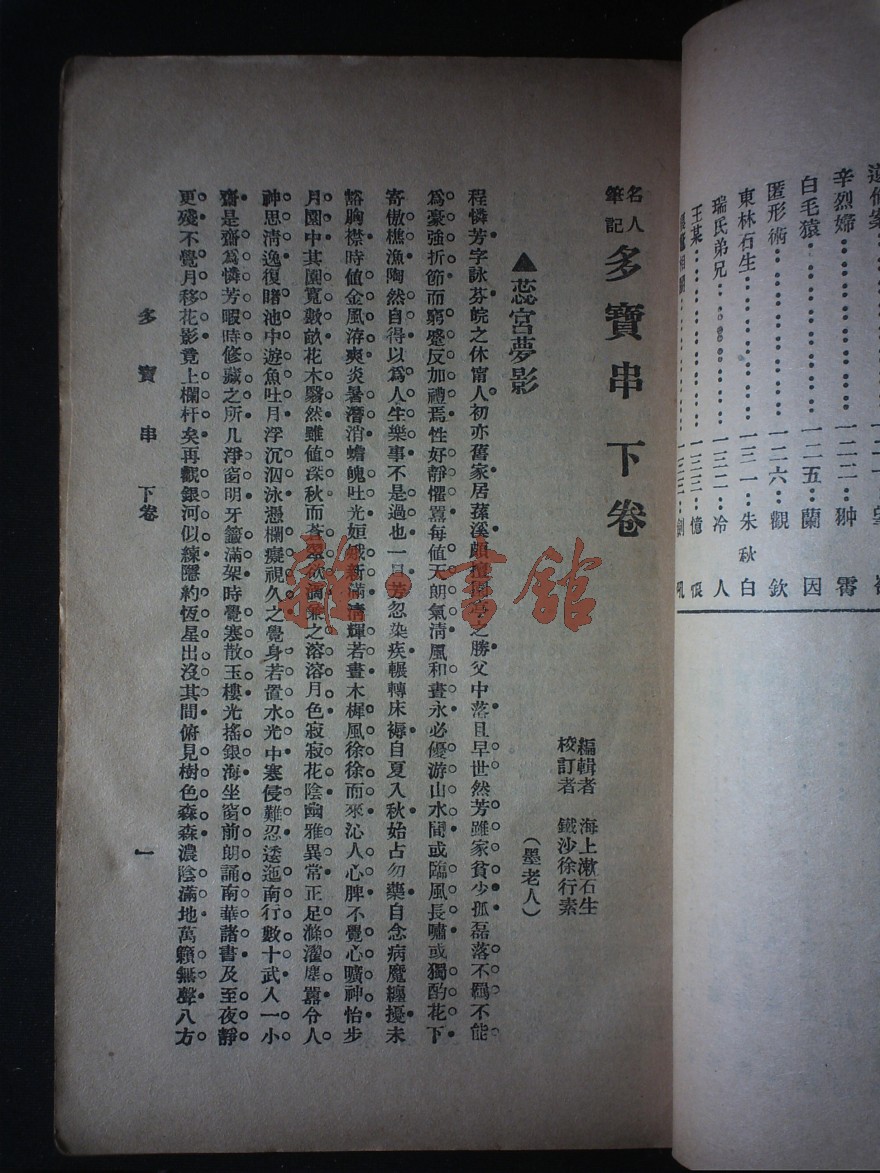 辛烈婦…………一二二…翀霄
白毛猿…………一二五…蘭因
匿形術…………一二六…觀欽
東林石生…………一三一…朱秋白
瑞氏弟兄…………一三二…冷人
王某…………一三三…憶
名人筆記 多寶串下卷
編輯者 海上漱石生
校訂者 鐵沙徐行素
▲蕊宮夢影 (墨老人)
程憐芳字詠芬皖之休甯人初亦舊家居蓀溪頗擅園亭之勝父中落且早世然芳雖家貧少孤磊落不羈不能
爲豪強折節而窮蹙反加禮焉性好靜懼囂每値天朗氣清風和晝永必優游山水間或臨風長嘯或獨酌花下
寄傲樵漁陶然自得以爲人生樂事不是過也一日芳忽染疾輾轉床褥自夏入秋始占勿藥自念病魔纏擾未
豁胸襟時値金風洊爽炎暑潛消蟾魄吐光姮娥新滿清輝若晝木樨風徐徐而來沁人心脾不覺心曠神怡步
月園中其園寬數畝花木翳然雖値深秋而蒼翠欲滴兼之溶溶月色寂寂花陰幽雅異常正足滌濯塵囂令人
神思清逸復睹池中遊魚吐月浮沉泅泳憑欄癡視久之覺身若置水光中寒侵難忍逶迤南行數十武入一小
齋是齋爲憐芳暇時修藏之所几淨窗明牙籤滿架時覺寒散玉樓光搖銀海坐窗前朗誦南華諸書及至夜靜
更殘不覺月移花影竟上欄杆矣再觀銀河似練隱約恆星出沒其間俯見樹色森森濃陰滿地萬籟無聲八方
多寶串 下卷 一
雜·書館